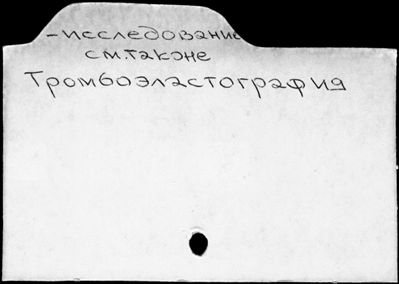 -исследование
см. также
Тромбоэластография